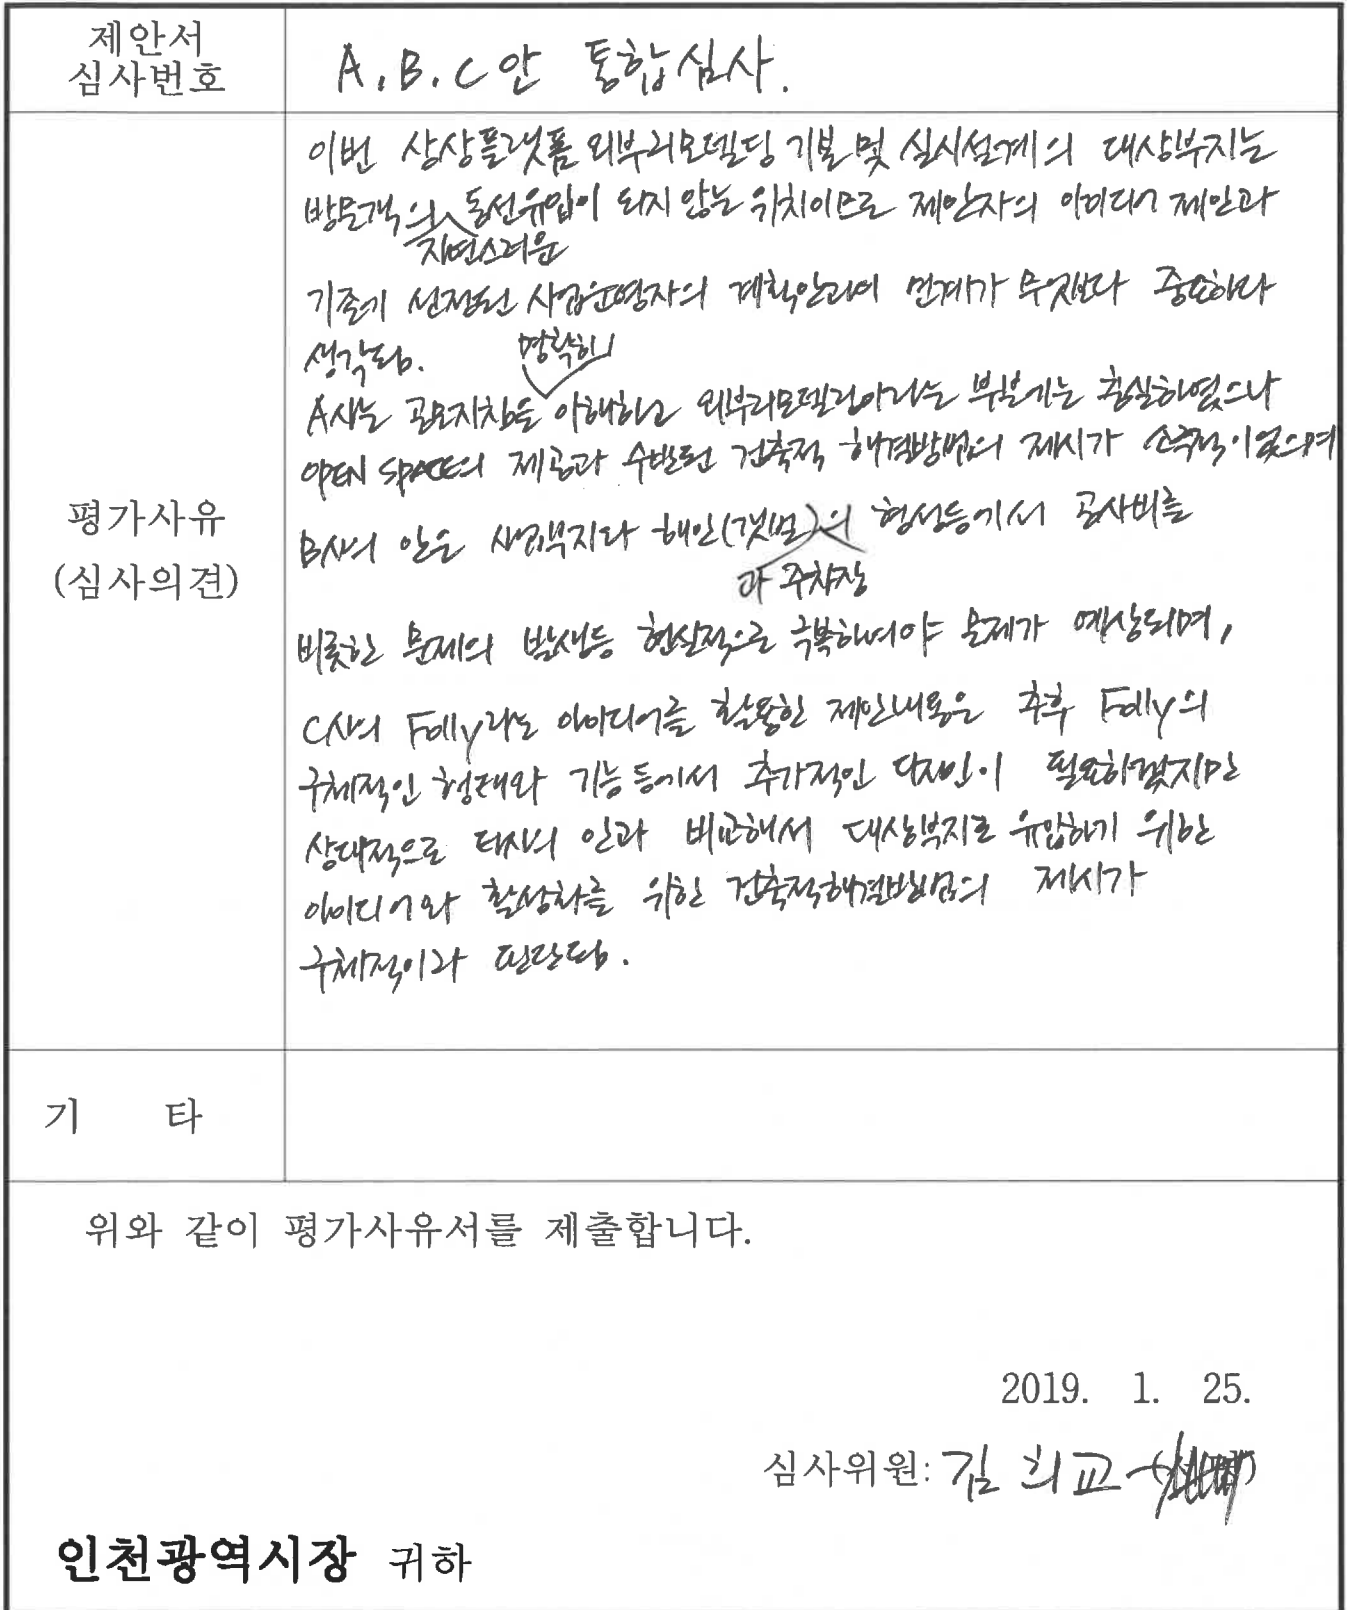 제안서
심사번호
A, B, C 안 통합심사.
이번 상상플랫폼 외부리모델링 기본 및 실시설계의 대상부지는
방문객의 동선유입이 되지 않는 위치이므로 제안자의 아이디어 제안과
자연스러운
기존에 선정된 사업운영자의 계획안과의 연계가 무엇보다 중요하다
생각됨.
명확히
A사는 공모지침을 이해하고 외부리모델링이라는 부분에는 충실하였으나
OPEN SPACE의 제공과 수반된 건축적 해결방법의 제시가 소극적이었으며
평가사유
(심사의견)
B사의 안은 사업부지와 해안(갯벌)의 형성등에서 공사비를
과 주차장
비롯한 문제의 발생등 현실적으로 극복하여야 문제가 예상되며,
C사의 Folly라는 아이디어를 활용한 제안내용은 추후 Folly의
구체적인 형태와 기능 등에서 추가적인 디자인이 필요하겠지만
상대적으로 타사의 안과 비교해서 대상부지로 유입하기 위한
아이디어와 활성화를 위한 건축적해결방법의 제시가
구체적이라 판단됨.
기 타
위와 같이 평가사유서를 제출합니다.
2019. 1. 25.
심사위원: 김 희 교
인천광역시장 귀하